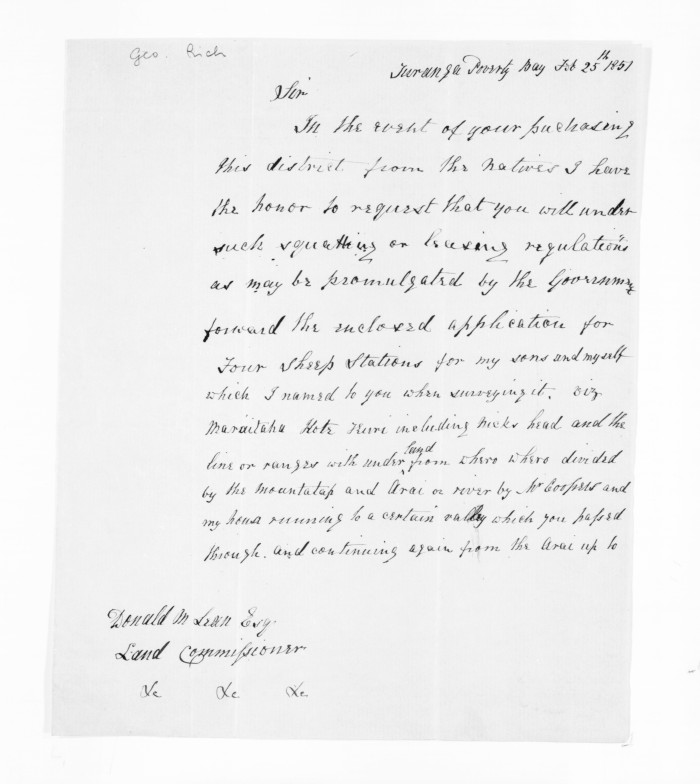 Geo. Rich
Turanga Poverty Bay Feb 25th 1851
Sir
In the event of your puchasing
this district from the Natives I have
the honor to request that you will under
such squatting or leasing regulations
as may be promulgated by the Governme
forward the enclosed application for
Four Sheep Stations for my sons and myself
which I named to you when surveying it. viz
Maraitaha Hote Kuri including nicks head and the
land
line or ranges with under from whero whero divided
by the Mountatap and Arai or river by Mr Coopers and
my house running to a certain valley which you passed
through. and continuing again from the Arai up to
Donald McLean Esq.
Land Commissioner
&c &c &c